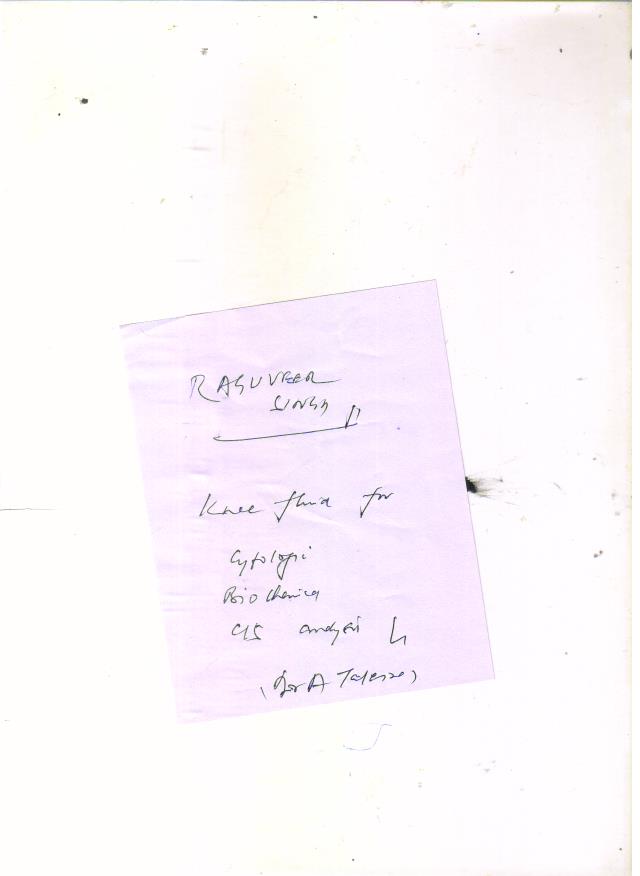 RAGUVEER
SINGH
Knee fluid for
Cytologi
Biochemica
C/S analysis
(Dr A